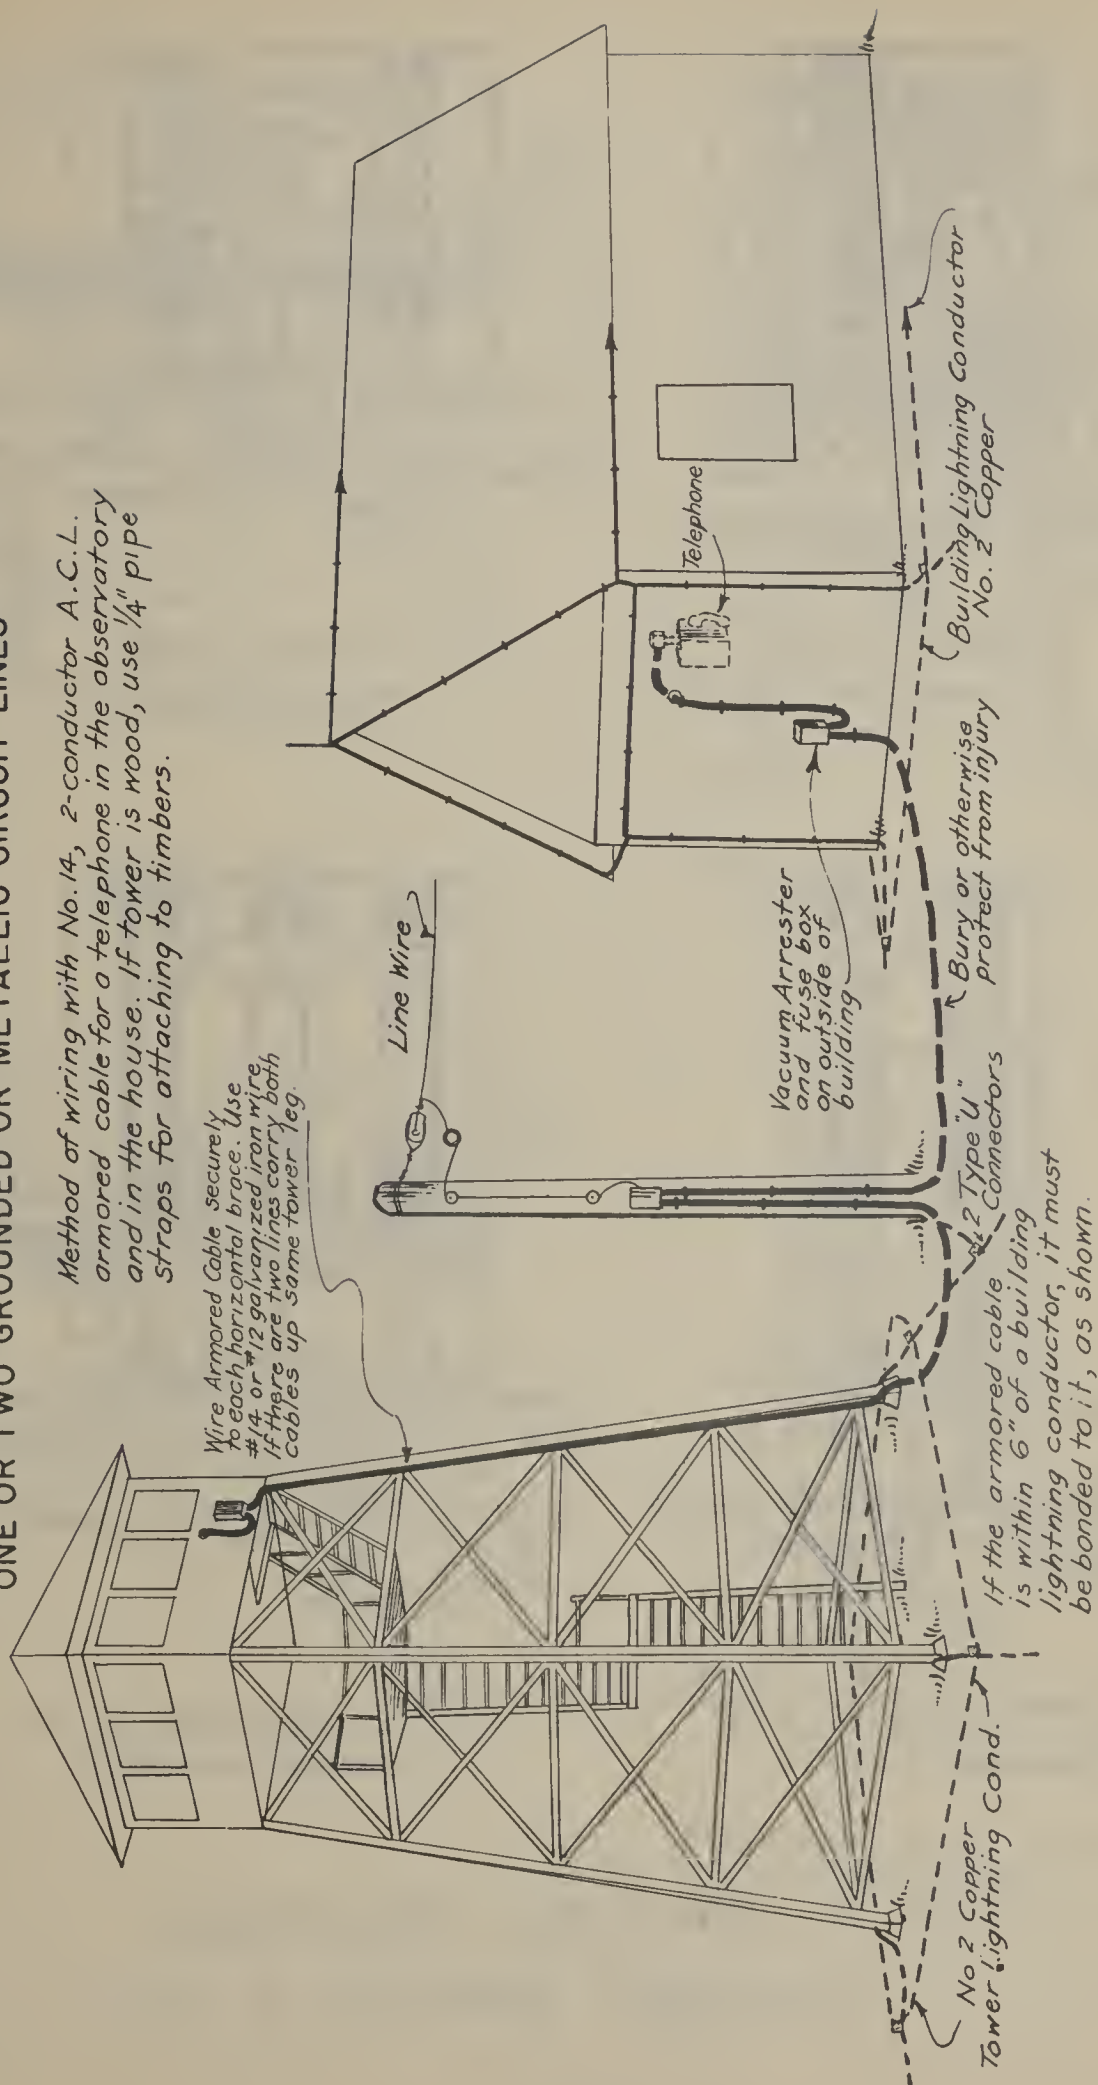 ONE OR TWO GROUNDED OR METALLIC CIRCUIT LINES
Method of wiring with No. 14, 2-conductor A.C.L.
armored cable for a telephone in the observatory
and in the house. If tower is wood, use 1/4" pipe
straps for attaching to timbers.
Wire Armored Cable securely
to each horizontal brace. Use
#14 or #12 galvanized iron wire
If there are two lines carry both
cables up same tower leg.
Line Wire
Telephone
Vacuum Arrester
and fuse box
on outside of
building
Building Lightning Conductor
No. 2 Copper
Bury or otherwise
protect from injury
2 Type "U"
Connectors
If the armored cable
is within 6" of a building
lightning conductor, it must
be bonded to it, as shown.
No 2 Copper
Tower Lightning Cond.